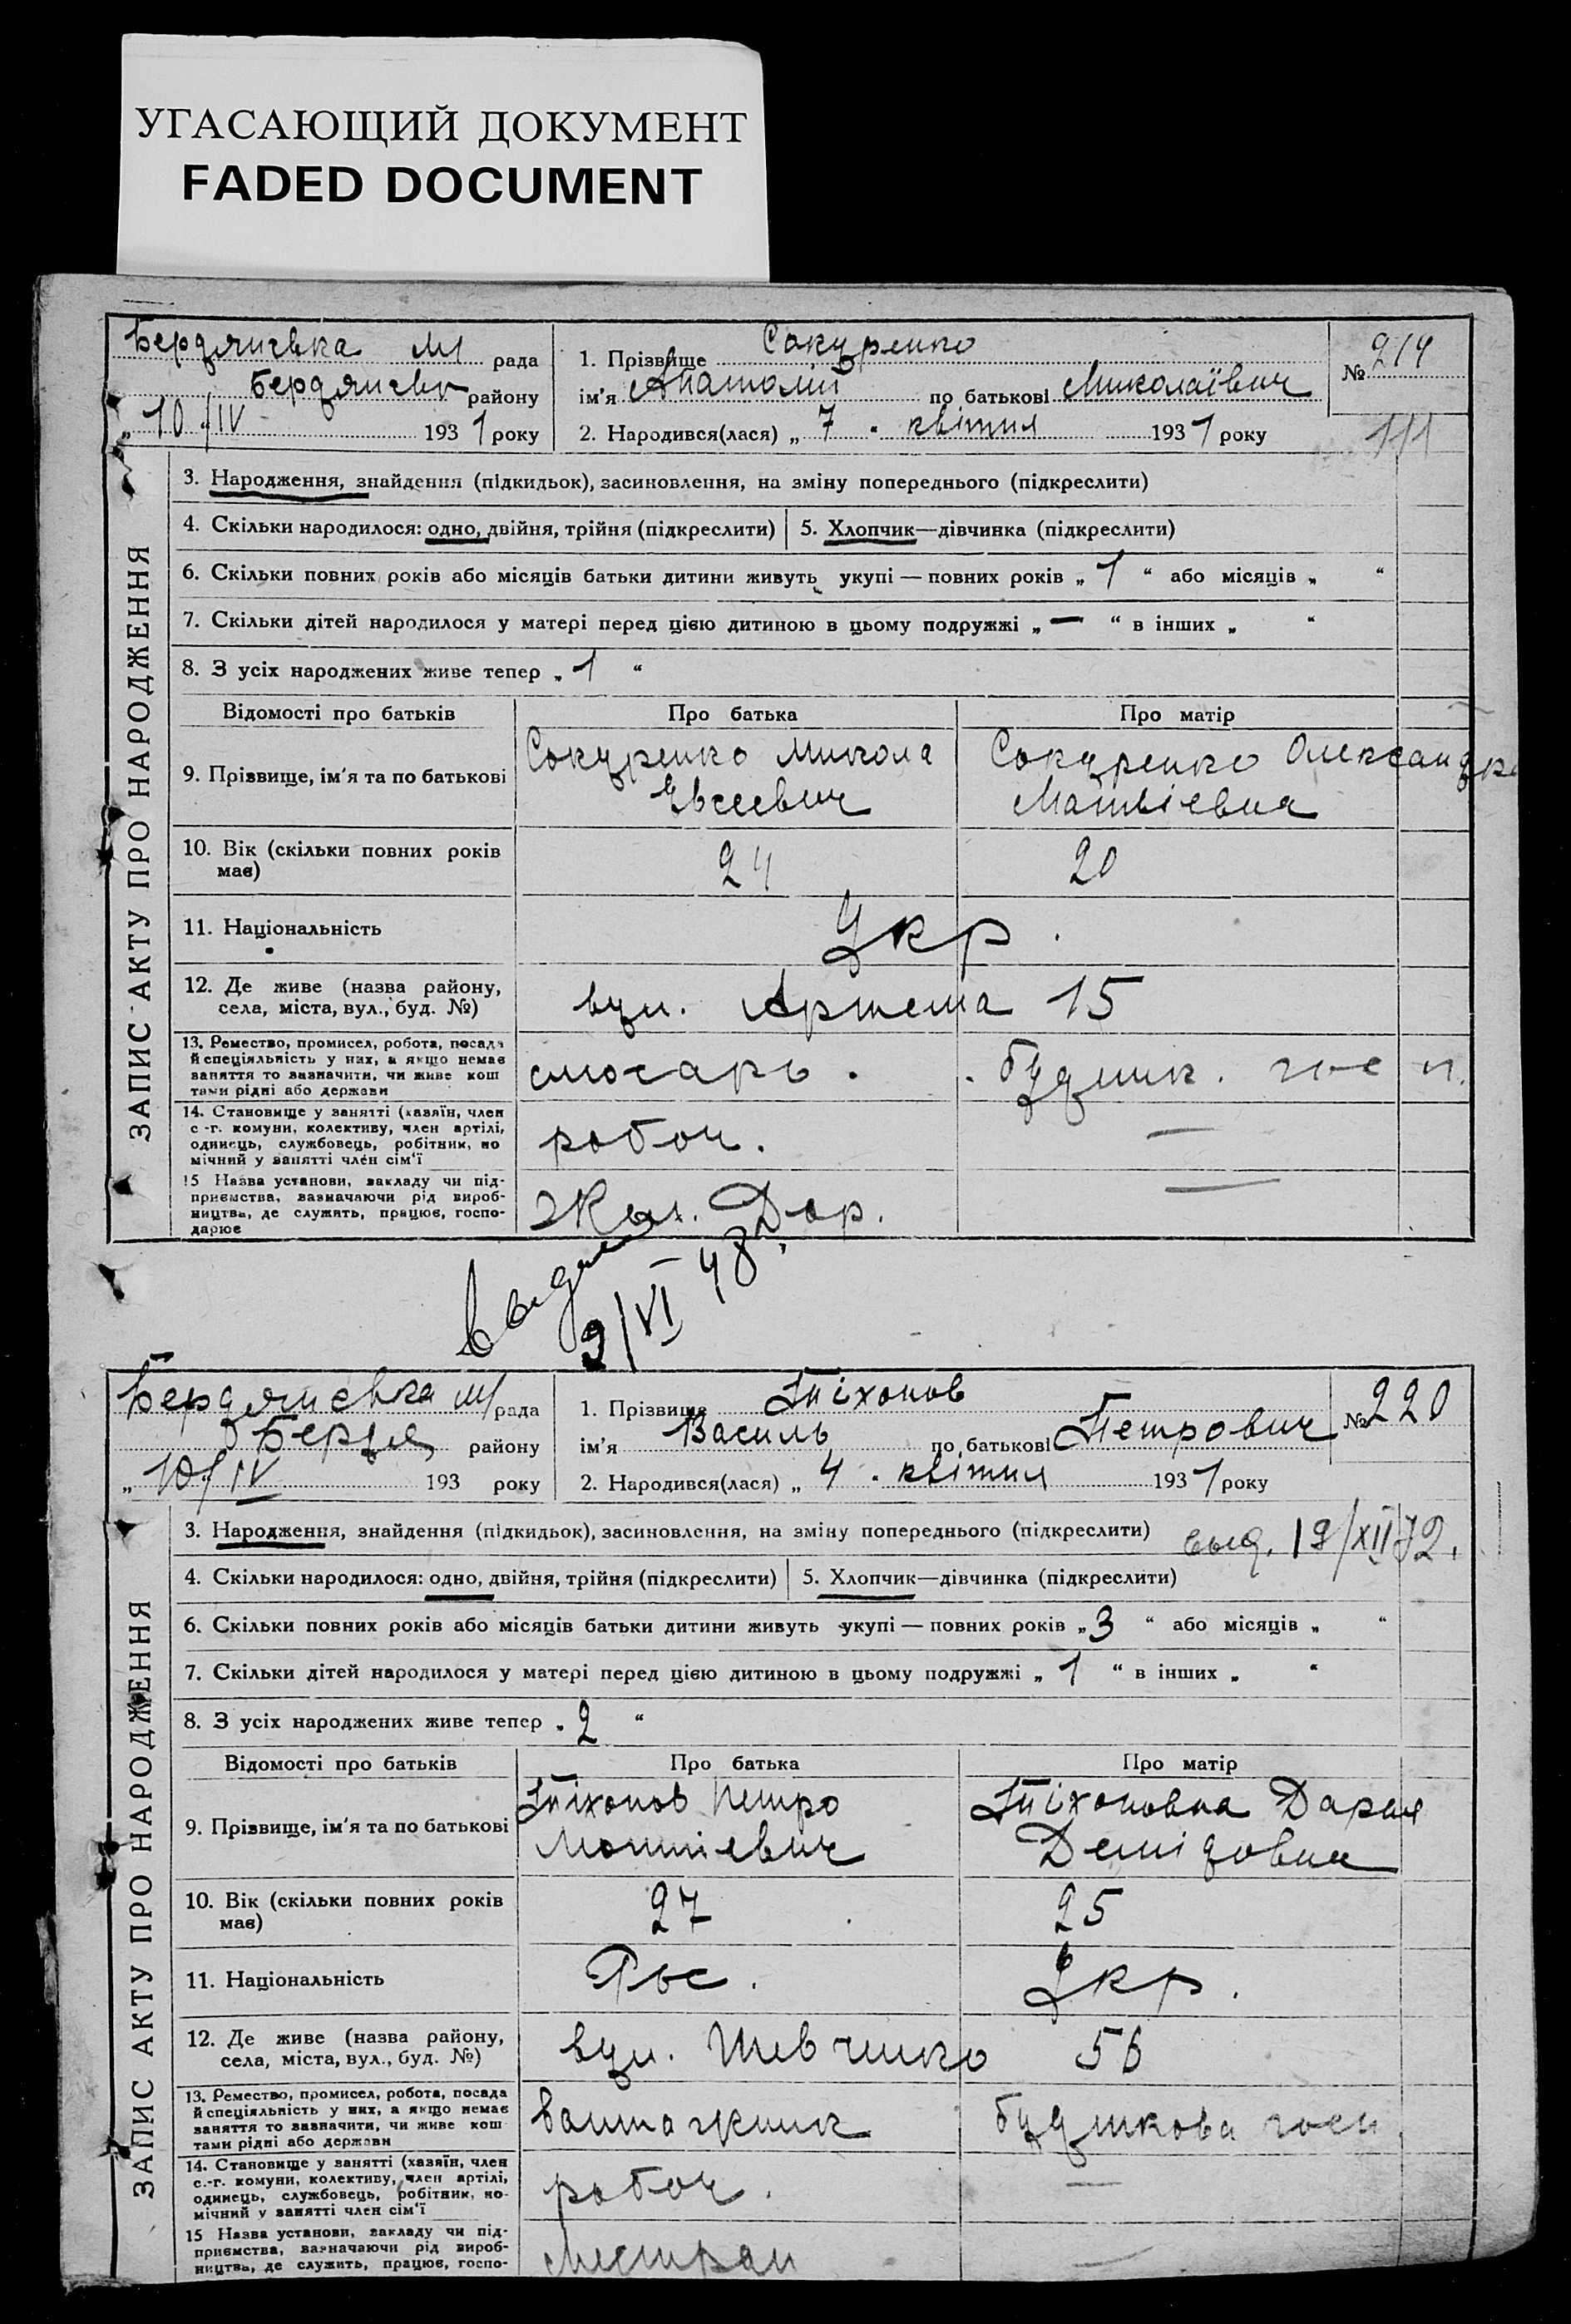 УГАСАЮЩИЙ ДОКУМЕНТ
FADED DOCUMENT
Бердянська м рада
Бердянськ району
„ 10 " IV 1931 року
1. Прізвище Сокуренко
ім'я Анатолій по батькові Миколаївич
2. Народився(лася) „ 7 " квітня 1931 року
№ 219
111
ЗАПИС АКТУ ПРО НАРОДЖЕННЯ
3. Народження, знайдення (підкидьок), засиновлення, на зміну попереднього (підкреслити)
4. Скільки народилося: одно, двійня, трійня (підкреслити) 5. Хлопчик—дівчинка (підкреслити)
6. Скільки повних років або місяців батьки дитини живуть укупі — повних років „ 1 “ або місяців „ “
7. Скільки дітей народилося у матері перед цією дитиною в цьому подружжі „ — “ в інших „ “
8. З усіх народжених живе тепер „ 1 “
Відомості про батьків Про батька Про матір
9. Прізвище, ім'я та по батькові
Сокуренко Микола
Євсеевич
Сокуренко Олександра
Матвіевна
10. Вік (скільки повних років
має)
24 20
11. Національність Укр.
12. Де живе (назва району,
села, міста, вул., буд. №)
вул. Артема 15
13. Ремество, промисел, робота, посада
й спеціяльність у них, а якщо немає
заняття то зазначити, чи живе кош
тами рідні або держави
слюсарь. будинк. гос п.
14. Становище у занятті (хазяїн, член
с.-г. комуни, колективу, член артілі,
одинець, службовець, робітник, по
мічний у занятті член сім'ї
робоч. —
15 Назва установи, закладу чи під-
приємства, зазначаючи рід вироб-
ництва, де служить, працює, госпо-
дарює
Дор. —
9/VI 48
Бердянська м рада
Бердян району
„ 10 " IV 193 року
1. Прізвище Тіхонов
ім'я Василь по батькові Петрович
2. Народився(лася) „ 4 " квітня 1931 року
№ 220
ЗАПИС АКТУ ПРО НАРОДЖЕННЯ
3. Народження, знайдення (підкидьок), засиновлення, на зміну попереднього (підкреслити)
выд. 19/XII 72.
4. Скільки народилося: одно, двійня, трійня (підкреслити) 5. Хлопчик—дівчинка (підкреслити)
6. Скільки повних років або місяців батьки дитини живуть укупі — повних років „ 3 “ або місяців „ “
7. Скільки дітей народилося у матері перед цією дитиною в цьому подружжі „ 1 “ в інших „ “
8. З усіх народжених живе тепер „ 2 “
Відомості про батьків Про батька Про матір
9. Прізвище, ім'я та по батькові
Тіхонов Петро
Тіхоновна Дарья
Демідовна
10. Вік (скільки повних років
має)
27 25
11. Національність Рос. Укр.
12. Де живе (назва району,
села, міста, вул., буд. №)
вул. Шевченко 56
13. Ремество, промисел, робота, посада
й спеціяльність у них, а якщо немає
заняття то зазначити, чи живе кош
тами рідні або держави
вантажник будинкова госп.
14. Становище у занятті (хазяїн, член
с.-г. комуни, колективу, член артілі,
одинець, службовець, робітник, по-
мічний у занятті член сім'ї
робоч. —
15 Назва установи, закладу чи під-
приємства, зазначаючи рід вироб-
ництва, де служить, працює, госпо-
—